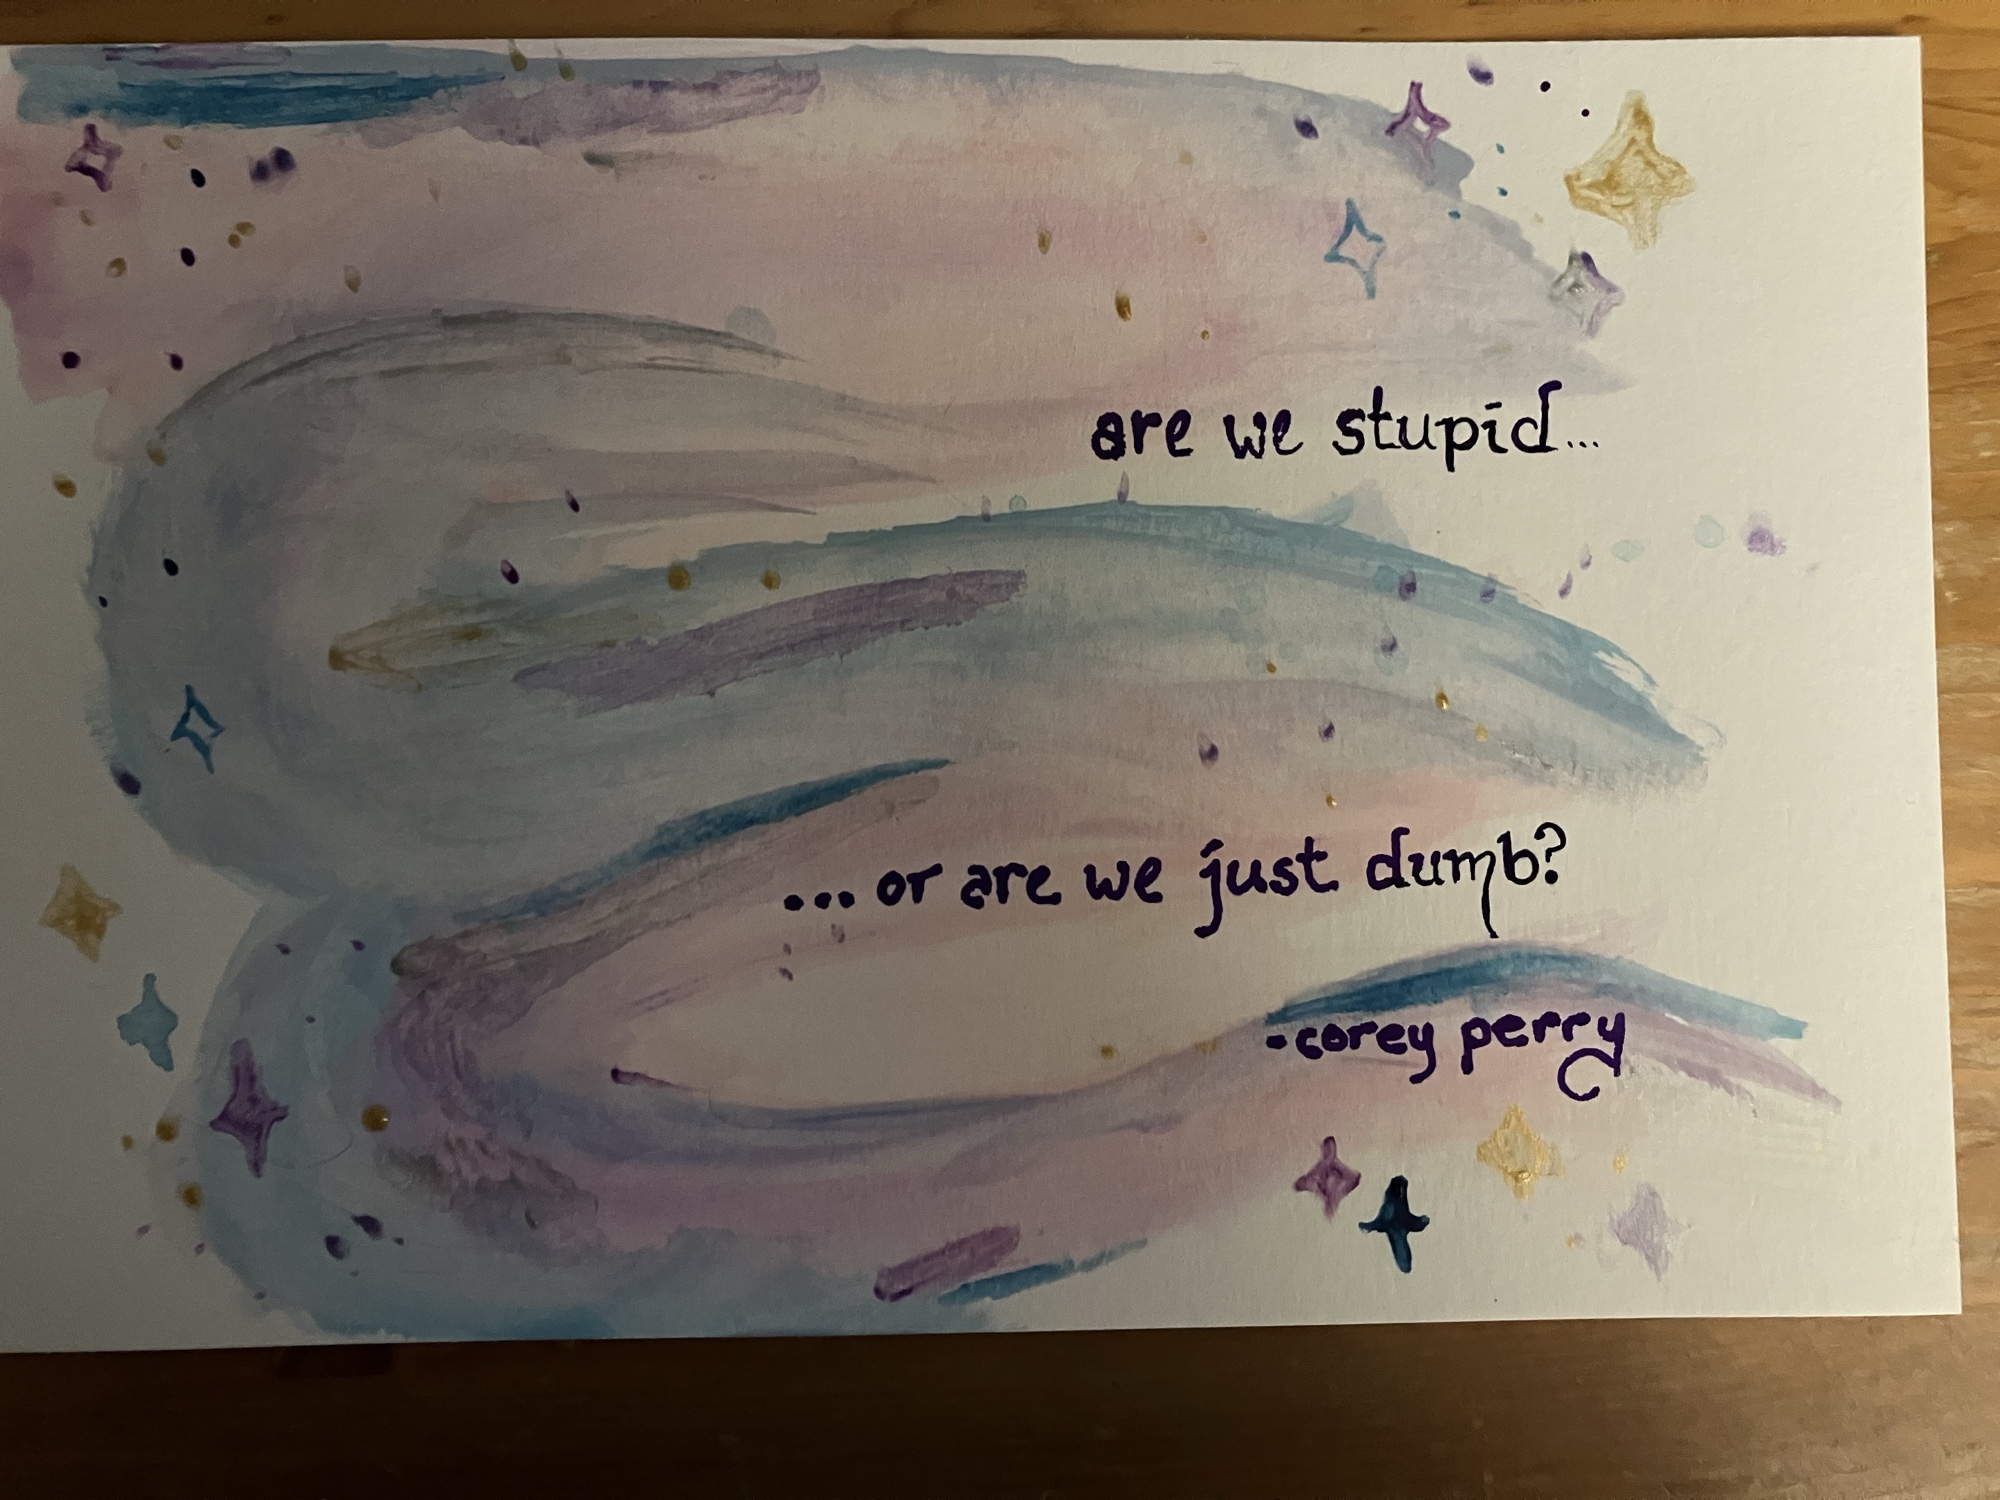 are we stupid...
...or are we just dumb?
-corey perry